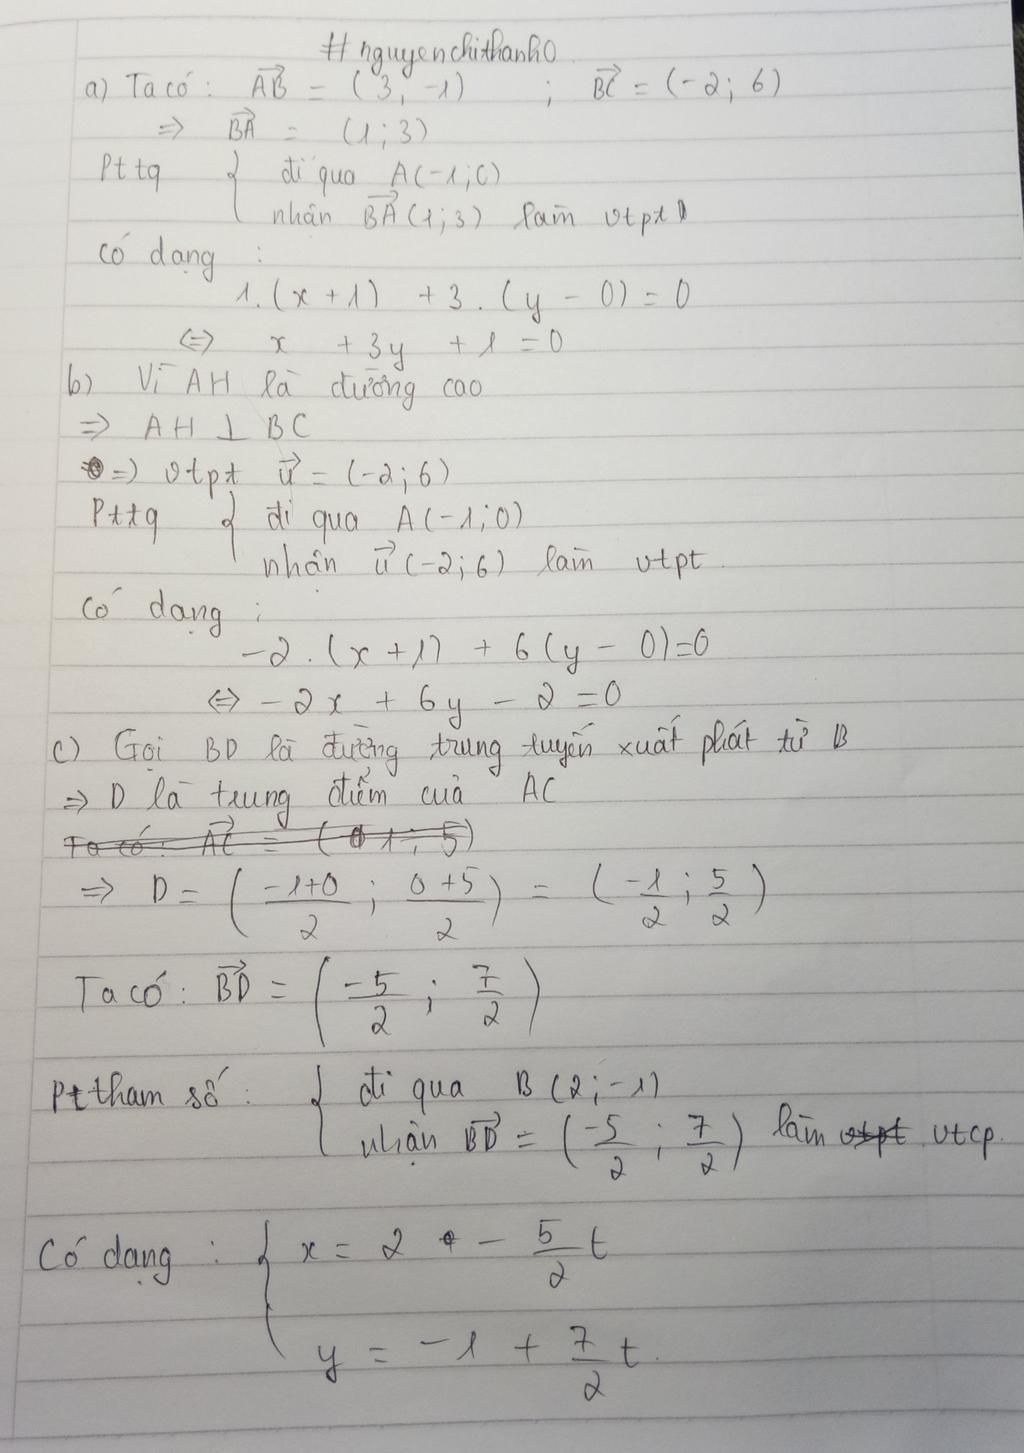 #nguyenchithanh0
a) Ta có: AB→ = (3; -1) ; BC→ = (-2; 6)
=> BA→ = (1; 3)
Pttq { đi qua A(-1; 0)
nhận BA→(1; 3) làm vtpt
có dạng :
1.(x + 1) + 3.(y - 0) = 0
<=> x + 3y + 1 = 0
b) Vì AH là đường cao
=> AH ⊥ BC
=> vtpt u→ = (-2; 6)
Pttq { đi qua A(-1; 0)
nhận u→(-2; 6) làm vtpt
có dạng :
-2.(x + 1) + 6(y - 0) = 0
<=> -2x + 6y - 2 = 0
c) Gọi BD là đường trung tuyến xuất phát từ B
=> D là trung điểm của AC
Ta có: AC→ = (1; 5)
=> D = (-1+0/2 ; 0+5/2) = (-1/2 ; 5/2)
Ta có: BD→ = (-5/2 ; 7/2)
Pt tham số: { đi qua B(2; -1)
nhận BD→ = (-5/2 ; 7/2) làm vtpt vtcp.
Có dạng : { x = 2 - 5/2 t
y = -1 + 7/2 t.